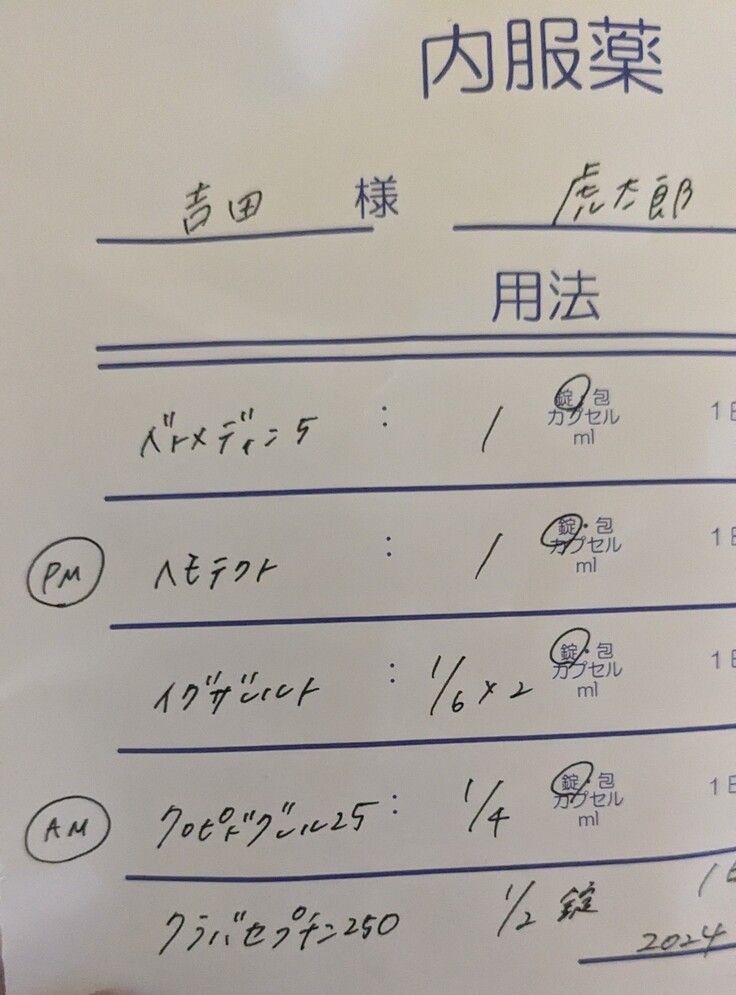 内服薬
吉田 様 虎太郎
用法
ベトメディン5 : 1 錠・包 カプセル ml 1日
PM ヘモテクト : 1 錠・包 カプセル ml 1日
イグザレルト : 1/6×2 錠・包 カプセル ml 1日
AM クロピドグレル25 : 1/4 錠・包 カプセル ml 1日
クラバセプチン250 1/2錠 1日
2024